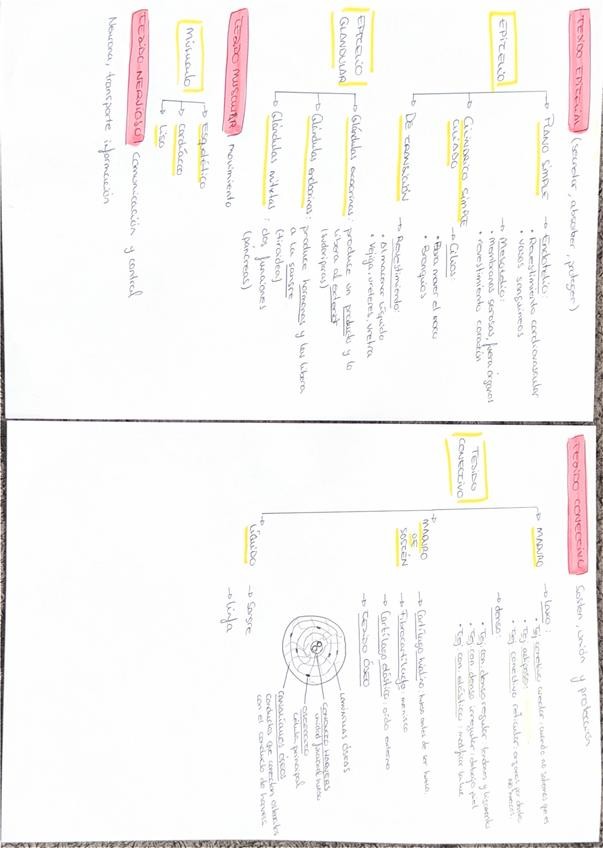 TEJIDO EPITELIAL (secretar, absorber, proteger)
EPITELIO
PLANO SIMPLE
→ Endotelio:
• Revestimiento cardiovascular
• vasos sanguíneos
→ Mesotelio:
• membranas serosas, fuera órganos
• revestimiento corazón
CILÍNDRICO SIMPLE
CILIADO
→ Cilios:
• Para mover el moco
• Bronquios
DE TRANSICIÓN
→ Revestimiento:
• almacenar líquido
• vejiga, uréteres, uretra
EPITELIO
GLANDULAR
→ Glándulas exocrinas: produce un producto y lo
libera al exterior
(sudoríparas)
→ Glándulas endocrinas: produce hormonas y las libera
a la sangre
(tiroides)
→ Glándulas mixtas: dos funciones
(páncreas)
TEJIDO MUSCULAR movimiento
MÚSCULO
→ Esquelético
→ Cardíaco
→ Liso
TEJIDO NERVIOSO: Comunicación y control
Neurona, transporte información
TEJIDO CONECTIVO Sostén, unión y protección
TEJIDO
CONECTIVO
→ MADURO
→ Laxo:
• Tej conectivo areolar: cuando no sabemos que es
• Tej adiposo:
• Tej conectivo reticular: órganos
→ denso:
• Tej con denso regular: tendones y ligamentos
• Tej con denso irregular: debajo piel
• Tej con elástico:
→ MADURO
DE
SOSTÉN
→ Cartílago hialino: hueso antes de ser hueso.
→ Fibrocartílago: menisco
→ Cartílago elástico: oído externo
→ TEJIDO ÓSEO
LAMINILLAS ÓSEAS
CONDUCTO HAVERS
unidad funcional hueso
OSTEOCITO
célula principal
CANALÍCULOS ÓSEOS
conductos que conectan osteocitos
con el conducto de havers
→ LÍQUIDO
→ Sangre
→ Linfa